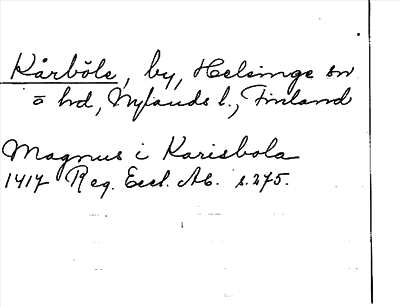 Kårböle, by, Helsinge sn
o hd, Nylands l., Finland
Magnus i Karisbola
1417 Reg. Eccl. Ab. s. 275.